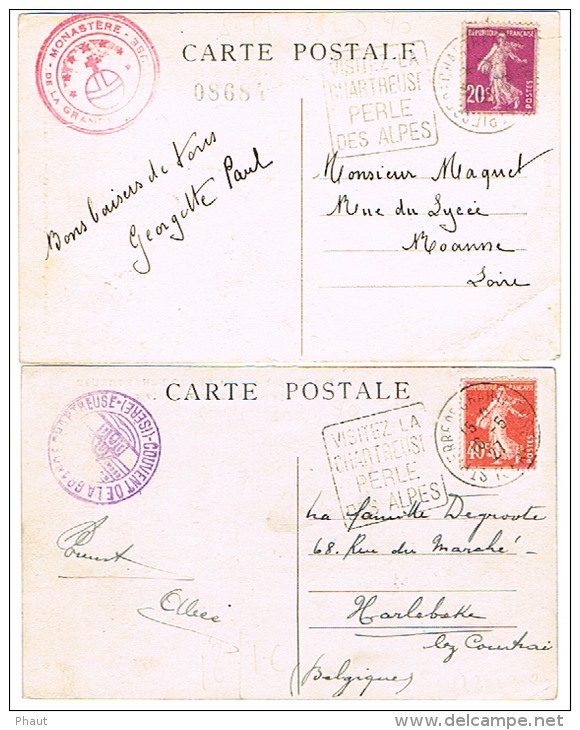 MONASTÈRE
DE LA GRANDE
CARTE POSTALE
08684
VISITEZ LA
CHARTREUSE
PERLE
DES ALPES
REPUBLIQUE FRANÇAISE
20c
POSTES
Bons baisers de tous
Georgette Paul
Monsieur Maquet
Rue du Lycée
Roanne
Loire
CARTE POSTALE
COUVENT DE LA GRANDE CHARTREUSE (ISÈRE)
VISITEZ LA
CHARTREUSE
PERLE
DES ALPES
REPUBLIQUE FRANÇAISE
40c
POSTES
La famille Degroote
68. Rue du Marché
Harlebeke
lez Courtrai
(Belgique)
Phaut
www.delcampe.net